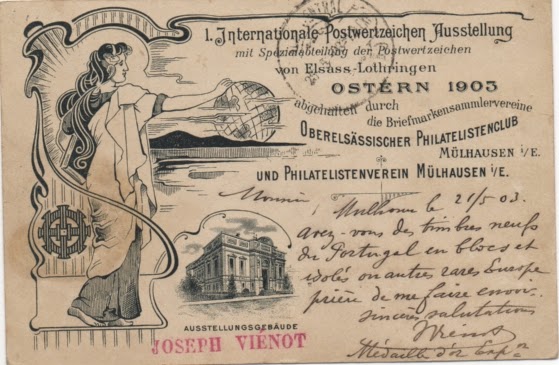 1. Internationale Postwertzeichen Ausstellung
mit Spezialabteilung der Postwertzeichen
von Elsass-Lothringen
OSTERN 1903
abgehalten durch
die Briefmarkensammlervereine
OBERELSÄSSISCHER PHILATELISTENCLUB
MÜLHAUSEN i/E.
UND PHILATELISTENVEREIN MÜLHAUSEN i/E.
Mulhouse le 21/5 03.
Avez-vous des timbres neufs
de Portugal en blocs et
isolés ou autres rares Europe
prière de me faire envoi
sincères salutations
Vienot
Médaille d'or Expon
AUSSTELLUNGSGEBÄUDE
JOSEPH VIENOT